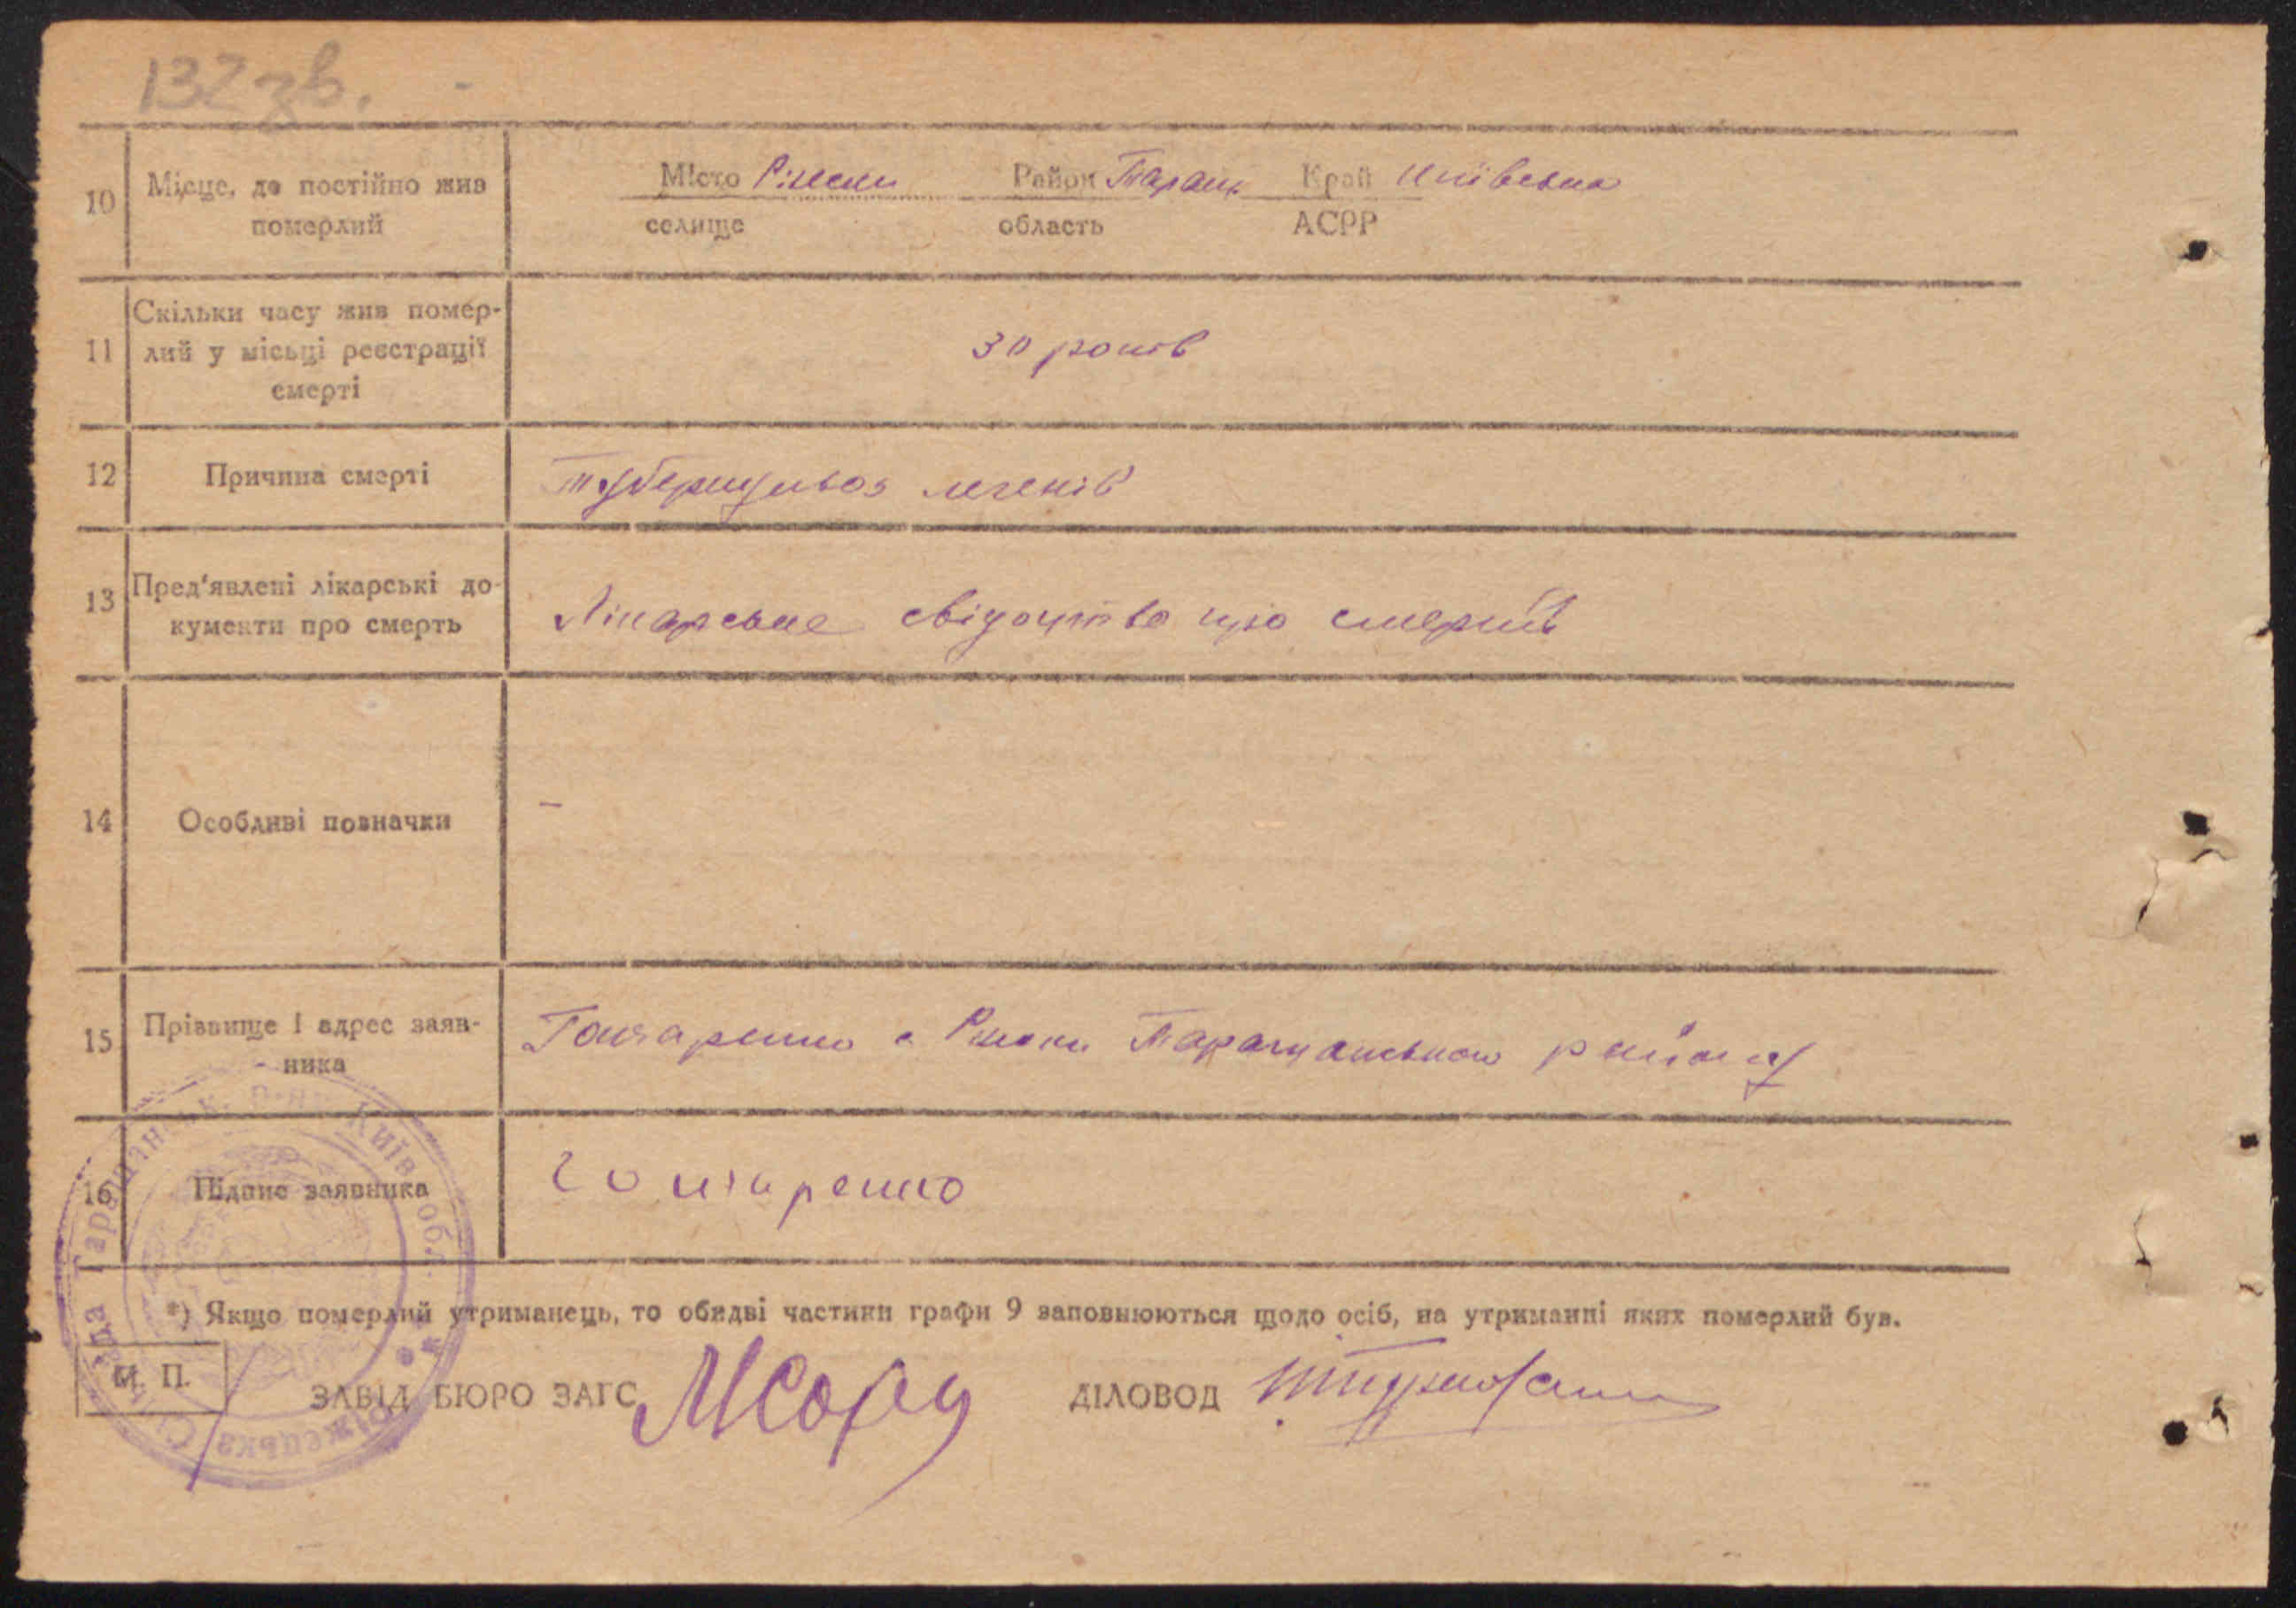 132 зв.
10 Місце, де постійно жив померлий
Місто Ріжки Район Таращ Край Київська
селище область АСРР
11 Скільки часу жив помер-
лий у місьці реєстрації
смерті
30 років
12 Причина смерті
туберкульоз легенів
13 Пред‘явлені лікарські до-
кументи про смерть
Лікарське свідоцтво про смерть
14 Особливі позначки
–
15 Прізвище і адрес заяв-
ника
Гончаренко с Ріжки Таращанського району
16 Підпис заявника
Гончаренко
*) Якщо померлий утриманець, то обидві частини графи 9 заповнюються щодо осіб, на утриманні яких померлий був.
М. П.
ЗАВІД БЮРО ЗАГС
ДІЛОВОД
Таращанськ. р-ну Київ. обл.